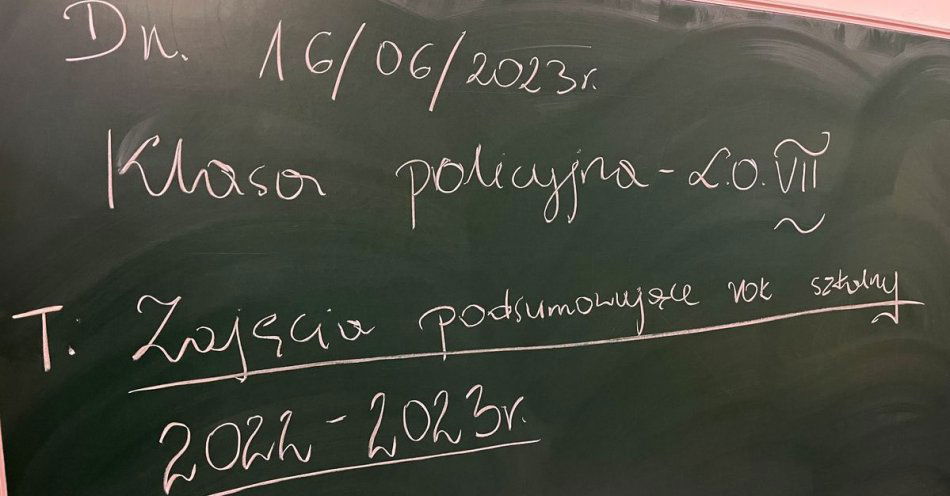 Dn. 16/06/2023r.
Klasa policyjna - L.O. VII
T. Zajęcia podsumowujące rok szkolny
2022 - 2023r.